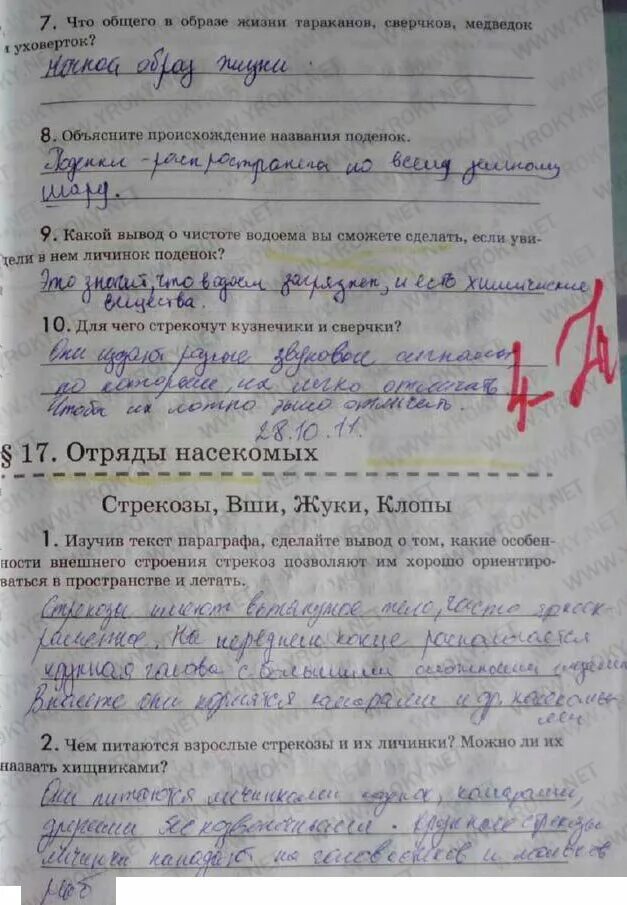 7. Что общего в образе жизни тараканов, сверчков, медведок
и уховерток?
Ночной образ жизни.
8. Объясните происхождение названия поденок.
Поденки - распространена по всему земному
шару.
9. Какой вывод о чистоте водоема вы сможете сделать, если уви-
дели в нем личинок поденок?
Это значит, что водоем загрязнен, и есть химические
вещества.
10. Для чего стрекочут кузнечики и сверчки?
Они издают разные звуковые сигналы
по которым их легко отличать
Чтобы их можно было отличать.
28.10.11.
4-
§ 17. Отряды насекомых
Стрекозы, Вши, Жуки, Клопы
1. Изучив текст параграфа, сделайте вывод о том, какие особен-
ности внешнего строения стрекоз позволяют им хорошо ориентиро-
ваться в пространстве и летать.
Стрекозы имеют вытянутое тело, часто ярко ок-
рашенное. На переднем конце располагается
крупная голова с большими
они кормятся комарами и др. насекомы-
ми
2. Чем питаются взрослые стрекозы и их личинки? Можно ли их
назвать хищниками?
Они питаются личинками комарами,
другими беспозвоночными. Крупные стрекозы
личинки нападают на головастиков и мальков
рыб
WWW.YROKY.NET